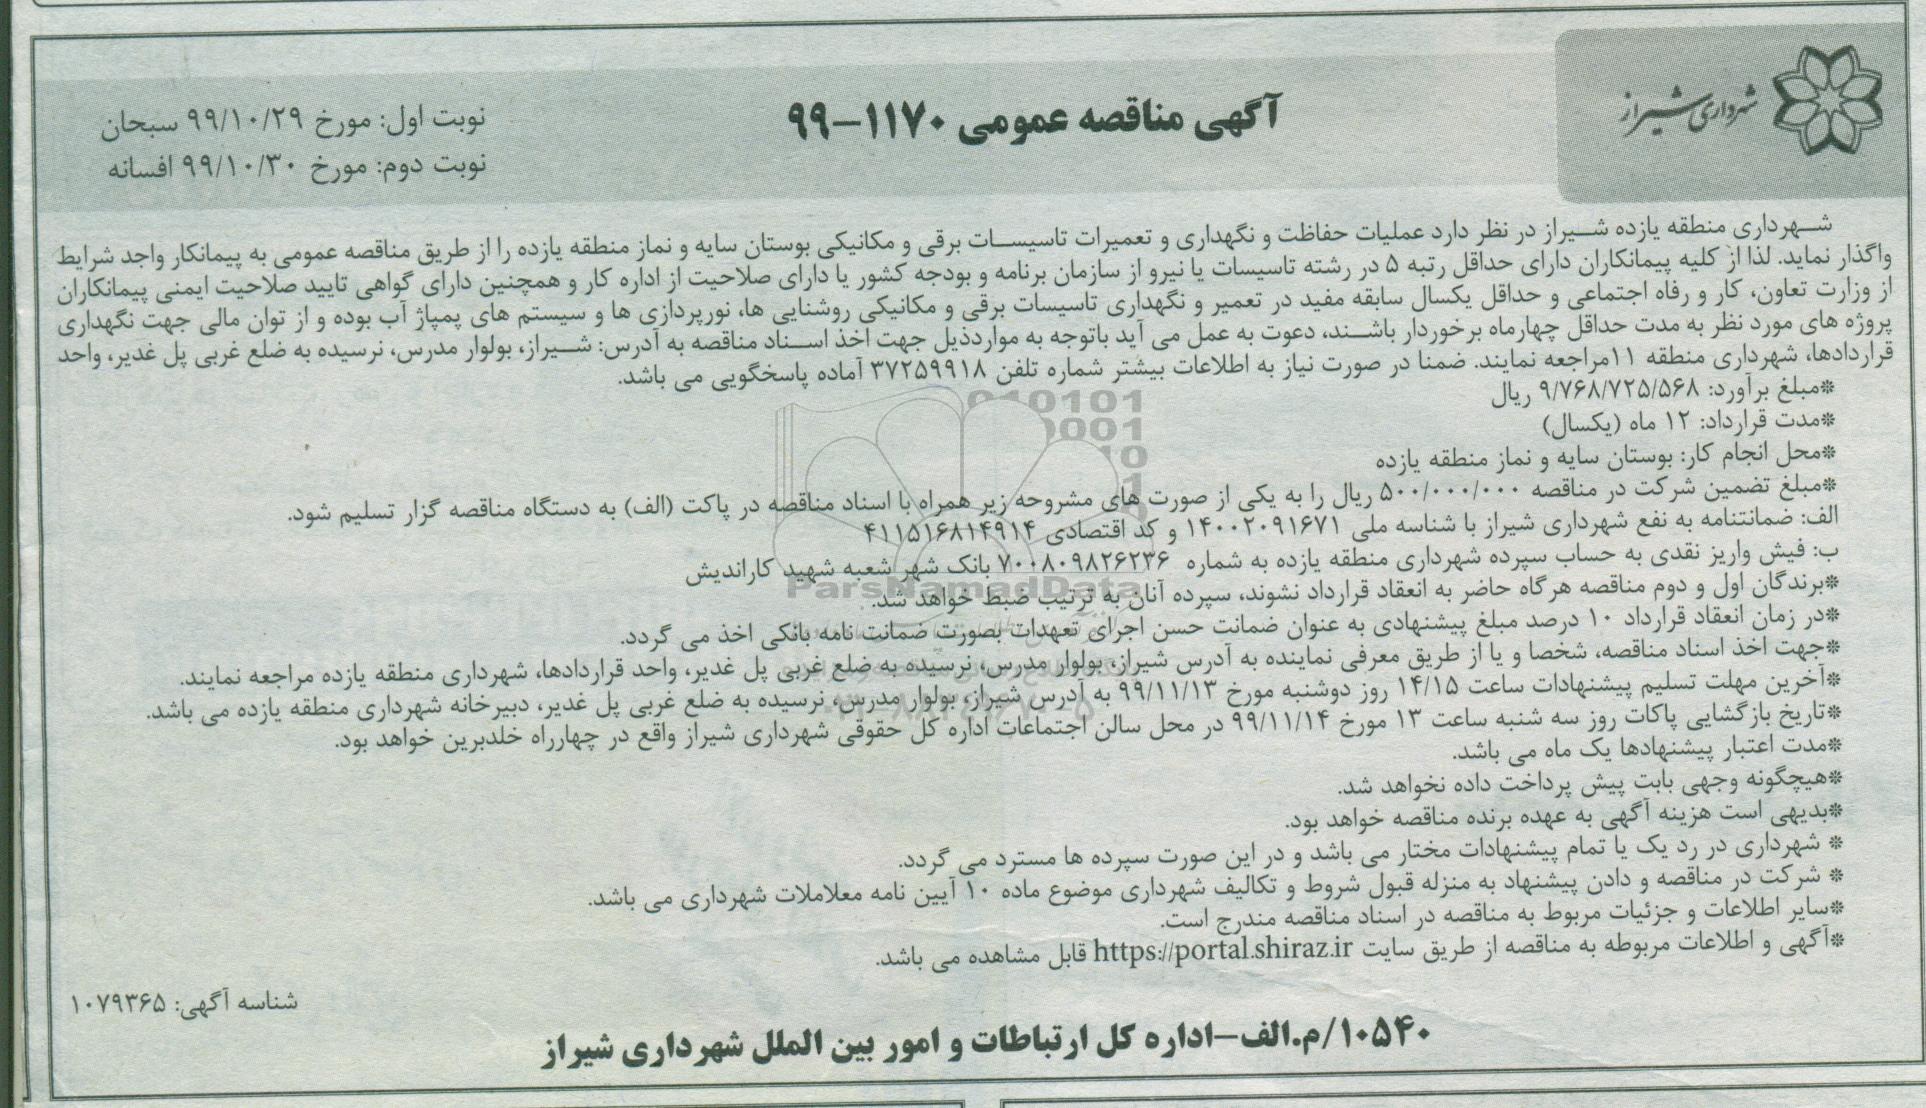 شهرداری شیراز
آگهی مناقصه عمومی ۱۱۷۰-۹۹
نوبت اول: مورخ ۹۹/۱۰/۲۹ سبحان
نوبت دوم: مورخ ۹۹/۱۰/۳۰ افسانه
شهرداری منطقه یازده شیراز در نظر دارد عملیات حفاظت و نگهداری و تعمیرات تاسیسات برقی و مکانیکی بوستان سایه و نماز منطقه یازده را از طریق مناقصه عمومی به پیمانکار واجد شرایط
واگذار نماید. لذا از کلیه پیمانکاران دارای حداقل رتبه ۵ در رشته تاسیسات یا نیرو از سازمان برنامه و بودجه کشور یا دارای صلاحیت از اداره کار و همچنین دارای گواهی تایید صلاحیت ایمنی پیمانکاران
از وزارت تعاون، کار و رفاه اجتماعی و حداقل یکسال سابقه مفید در تعمیر و نگهداری تاسیسات برقی و مکانیکی روشنایی ها، نورپردازی ها و سیستم های پمپاژ آب بوده و از توان مالی جهت نگهداری
پروژه های مورد نظر به مدت حداقل چهارماه برخوردار باشند، دعوت به عمل می آید باتوجه به مواردذیل جهت اخذ اسناد مناقصه به آدرس: شیراز، بولوار مدرس، نرسیده به ضلع غربی پل غدیر، واحد
قراردادها، شهرداری منطقه ۱۱مراجعه نمایند. ضمنا در صورت نیاز به اطلاعات بیشتر شماره تلفن ۳۷۲۵۹۹۱۸ آماده پاسخگویی می باشد.
*مبلغ برآورد: ۹/۷۶۸/۷۲۵/۵۶۸ ریال
*مدت قرارداد: ۱۲ ماه (یکسال)
*محل انجام کار: بوستان سایه و نماز منطقه یازده
*مبلغ تضمین شرکت در مناقصه ۵۰۰/۰۰۰/۰۰۰ ریال را به یکی از صورت های مشروحه زیر همراه با اسناد مناقصه در پاکت (الف) به دستگاه مناقصه گزار تسلیم شود.
الف: ضمانتنامه به نفع شهرداری شیراز با شناسه ملی ۱۴۰۰۲۰۹۱۶۷۱ و کد اقتصادی ۴۱۱۵۱۶۸۱۴۹۱۴
ب: فیش واریز نقدی به حساب سپرده شهرداری منطقه یازده به شماره ۷۰۰۸۰۹۸۲۶۲۳۶ بانک شهر شعبه شهید کاراندیش
*برندگان اول و دوم مناقصه هرگاه حاضر به انعقاد قرارداد نشوند، سپرده آنان به ترتیب ضبط خواهد شد.
*در زمان انعقاد قرارداد ۱۰ درصد مبلغ پیشنهادی به عنوان ضمانت حسن اجرای تعهدات بصورت ضمانت نامه بانکی اخذ می گردد.
*جهت اخذ اسناد مناقصه، شخصا و یا از طریق معرفی نماینده به آدرس شیراز، بولوار مدرس، نرسیده به ضلع غربی پل غدیر، واحد قراردادها، شهرداری منطقه یازده مراجعه نمایند.
*آخرین مهلت تسلیم پیشنهادات ساعت ۱۴/۱۵ روز دوشنبه مورخ ۹۹/۱۱/۱۳ به آدرس شیراز، بولوار مدرس، نرسیده به ضلع غربی پل غدیر، دبیرخانه شهرداری منطقه یازده می باشد.
*تاریخ بازگشایی پاکات روز سه شنبه ساعت ۱۳ مورخ ۹۹/۱۱/۱۴ در محل سالن اجتماعات اداره کل حقوقی شهرداری شیراز واقع در چهارراه خلدبرین خواهد بود.
*مدت اعتبار پیشنهادها یک ماه می باشد.
*هیچگونه وجهی بابت پیش پرداخت داده نخواهد شد.
*بدیهی است هزینه آگهی به عهده برنده مناقصه خواهد بود.
* شهرداری در رد یک یا تمام پیشنهادات مختار می باشد و در این صورت سپرده ها مسترد می گردد.
* شرکت در مناقصه و دادن پیشنهاد به منزله قبول شروط و تکالیف شهرداری موضوع ماده ۱۰ آیین نامه معلاملات شهرداری می باشد.
*سایر اطلاعات و جزئیات مربوط به مناقصه در اسناد مناقصه مندرج است.
*آگهی و اطلاعات مربوطه به مناقصه از طریق سایت https://portal.shiraz.ir قابل مشاهده می باشد.
شناسه آگهی: ۱۰۷۹۳۶۵
۱۰۵۴۰/م.الف-اداره کل ارتباطات و امور بین الملل شهرداری شیراز
ParsNamadData